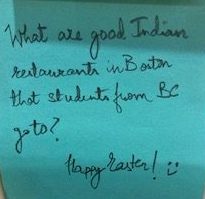 What are good Indian
restaurants in Boston
that students from BC
go to?
Happy Easter! :)